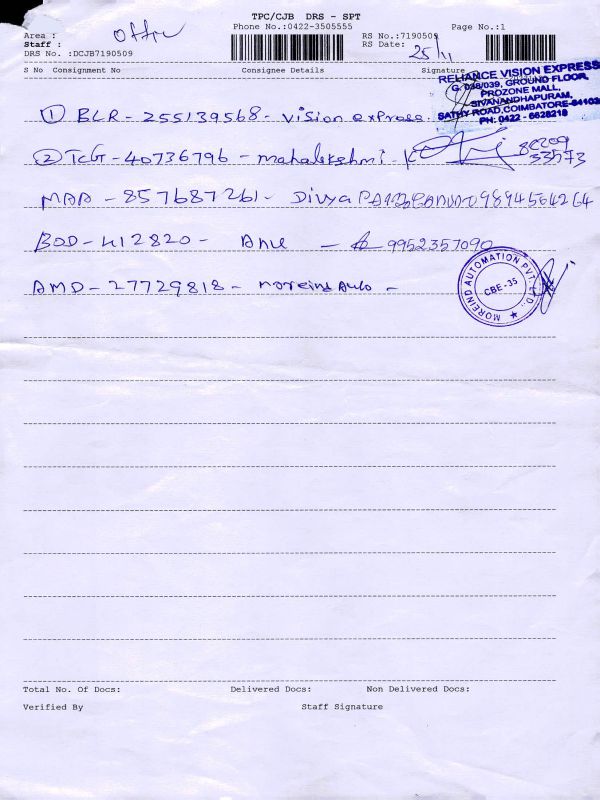 TPC/CJB DRS - SPT
Area : Office Phone No.:0422-3505555 Page No.:1
Staff : RS No.:7190509
DRS No. :DCJB7190509 RS Date: 25/11
S No Consignment No Consignee Details Signature
RELIANCE VISION EXPRESS
G-038/039, GROUND FLOOR,
PROZONE MALL,
SIVANANDHAPURAM,
SATHY ROAD, COIMBATORE-641035
PH: 0422 - 6628218
① BLR - 255139568 - vision express.
② TCG - 40736796 - mahalakshmi
33573
MAA - 857687261 - Divya 9894564264
BOD - 412820 - Anu - 9952357090
AMD - 27729818 - moreind Auto -
MOREIND AUTOMATION PVT. LTD.,
CBE-35
Total No. Of Docs: Delivered Docs: Non Delivered Docs:
Verified By Staff Signature